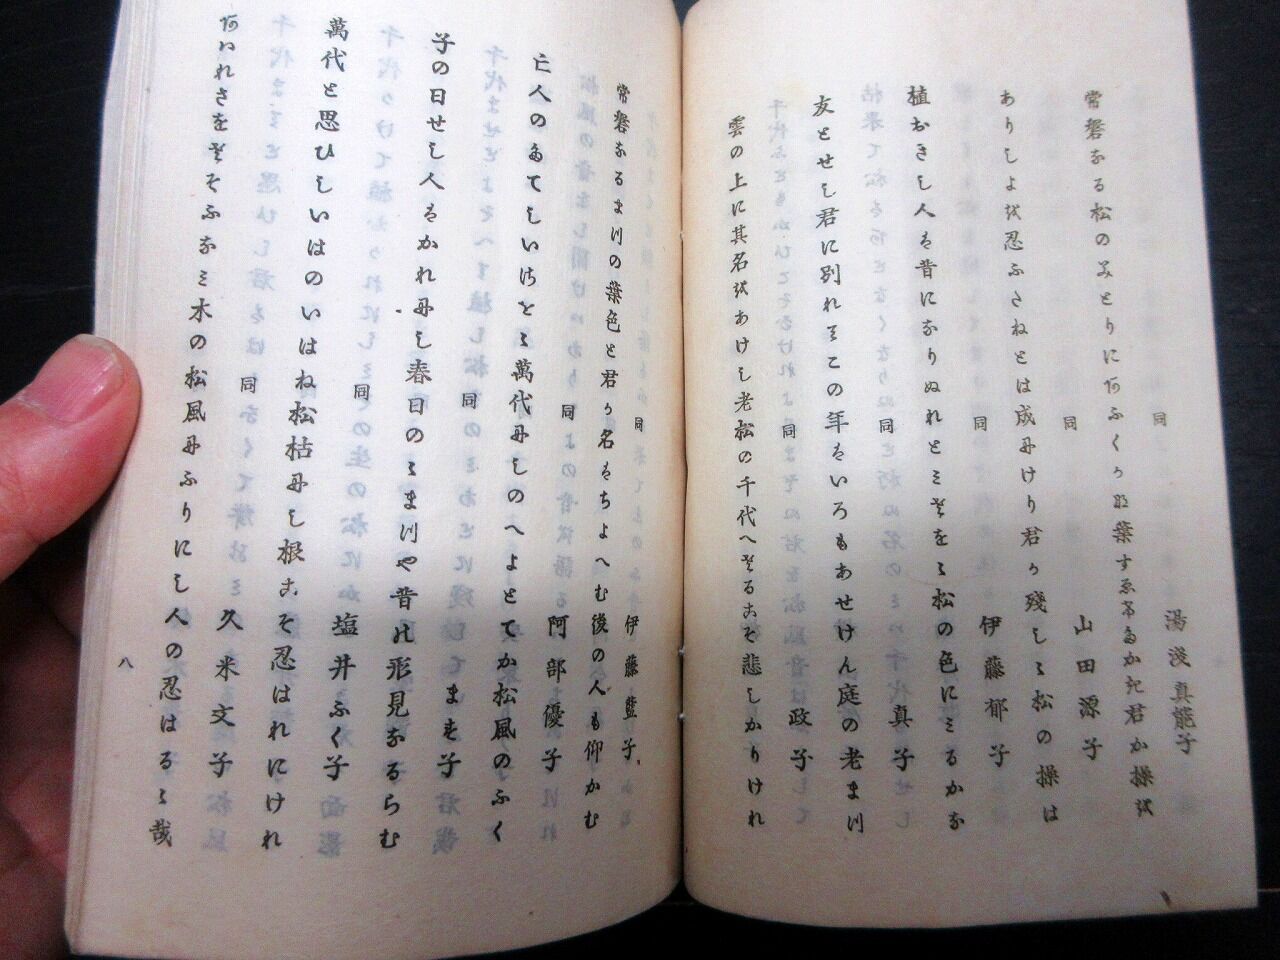 同　湯淺真龍子
常磐なる松のみとりにあふくかな葉すゑまたかき君か操を
同　山田源子
ありしよを忍ふさねとは成にけり君か殘しゝ松の操は
同　伊藤郁子
植おきし人は昔になりぬれとみさをゝ松の色にみるかな
同　真子
友とせし君に別れてこの年はいろもあせけん庭の老まつ
同　政子
雲の上に其名をあけし老松の千代へさるこそ悲しかりけれ
同　伊藤藍子
常磐なるまつの葉色と君か名はちよへむ後の人も仰かむ
同　阿部優子
亡人のたてしいほとゝ萬代にしのへよとてか松風のふく
同　ます子
子の日せし人はかれにし春日のゝまつや昔の形見なるらむ
同　塩井ふく子
萬代と思ひしいはのいはね松枯にし根こそ忍はれにけれ
同　久米文子
あはれさをさそふなみ木の松風にふりにし人の忍はるゝ哉
八